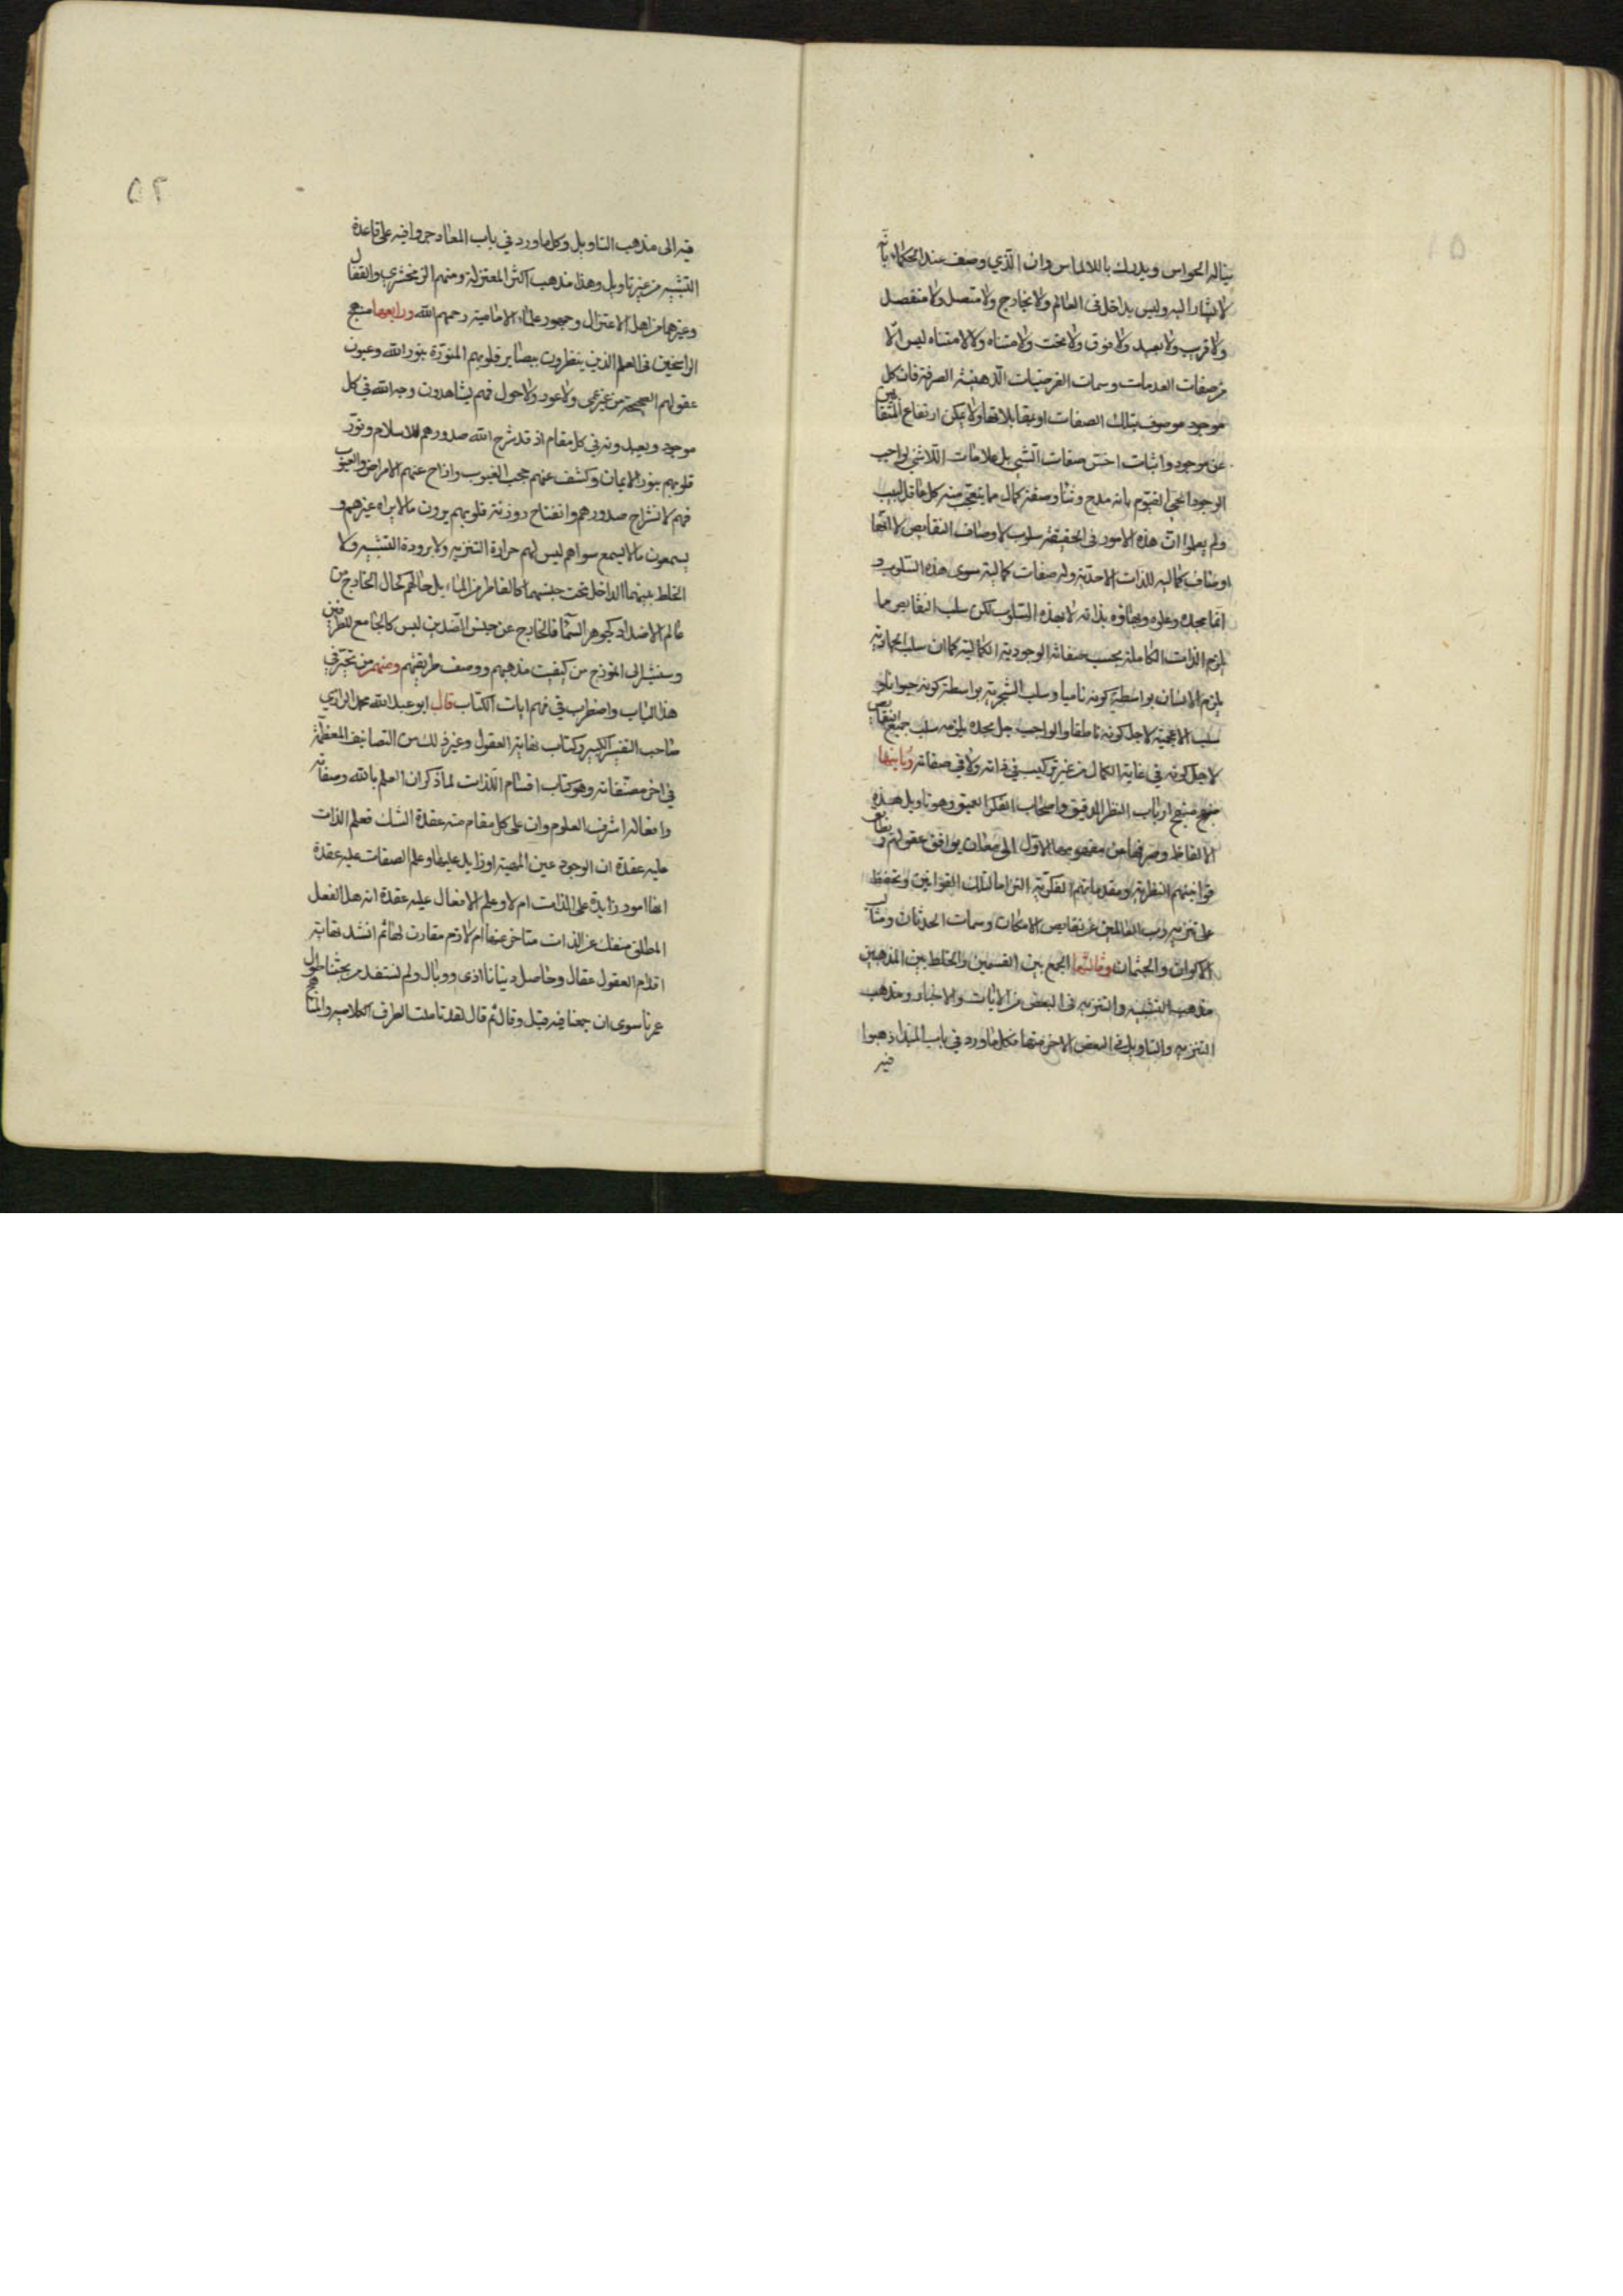 يناله الحواس ويدرك باللالماس وان الذي وصف عند الحكماء بانه
لا يشار اليه وليس بداخل في العالم ولا بخارج ولا متصل ولا منفصل
ولا قريب ولا بعيد ولا فوق ولا تحت ولا متناه ولا لا متناه ليس الا
من صفات العدمات وسمات الفرضيات الذهنية الصرفة فان كل
موجود موصوف بتلك الصفات او بمقابلاتها ولا يمكن ارتفاع المتقابلين
عن موجود واثبات اخس صفات الشي بل علامات اللاشي لواجب
الوجود الحي القيوم بانه مدح وثنا وصفة كمال مما يتعجب منه كل عاقل لبيب
ولم يعلموا ان هذه الامور في الحقيقة سلوب لاوصاف النقايص لا انها
اوصاف كمالية للذات الاحدية وله صفات كمالية سوى هذه السلوب و
انما مجده وعلوه وبهاؤه بذاته لا بهذه السلوب لكن سلب النقايص مما
يلزم الذات الكاملة بحسب صفاته الوجودية الكمالية كما ان سلب الجمادية
يلزم الانسان بواسطة كونه ناميا وسلب الشجرية بواسطة كونه حيوانا و
سلب الاعجمية لاجل كونه ناطقا والواجب جل مجده يلزمه سلب جميع النقايص
لاجل كونه في غاية الكمال من غير تركيب في ذاته ولا في صفاته وثانيها
منهج ارباب النظر الدقيق واصحاب الفكر العميق وهو تاويل هذه
الالفاظ وصرفها عن مفهومها الاول الى معان يوافق عقولهم ويطابق
قوانينهم النظرية ومقدماتهم الفكرية التزاما لتلك القوانين وتحفظا
على تنزيه رب العالمين عن نقايص الامكان وسمات الحدثان ومثالب
الاكوان والجثمان وثالثها الجمع بين القسمين والخلط بين المذهبين
مذهب التشبيه والتنزيه في البعض من الايات والاخبار ومذهب
التنزيه والتاويل في البعض الاخر منها فكل ما ورد في باب المبدا ذهبوا
فيه
٥٢
فيه الى مذهب التاويل وكل ما ورد في باب المعاد جروا فيه على قاعدة
التشبيه من غير تاويل وهذا مذهب اكثر المعتزلة ومنهم الزمخشري والقفال
وغيرهما من اهل الاعتزال وجمهور علماء الامامية رحمهم الله ورابعها منهج
الراسخين في العلم الذين ينظرون ببصاير قلوبهم المنورة بنور الله وعيون
عقولهم الصحيحة من غير عمى ولا عور ولا حول فهم يشاهدون وجه الله في كل
موجود ويعبدونه في كل مقام اذ قد شرح الله صدورهم للاسلام ونور
قلوبهم بنور الايمان وكشف عنهم حجب الغيوب وازاح عنهم الامراض والعيوب
فهم لانشراح صدورهم وانفتاح روزنة قلوبهم يرون ما لا يراه غيرهم و
يسمعون ما لا يسمع سواهم ليس لهم حرارة التنزيه ولا برودة التشبيه ولا
الخلط بينهما الداخل تحت جنسهما كالفاطر من الماء بل حالهم كحال الخارج من
عالم الاضداد كجوهر السماء فالخارج عن جنس الضدين ليس كالجامع للطرفين
وسنشير الى انموذج من كيفية مذهبهم ووصف طريقتهم ومنهم من تحير في
هذا الباب واضطرب في فهم ايات الكتاب قال ابو عبد الله محمد الرازي
صاحب التفسير الكبير وكتاب نهاية العقول وغير ذلك من التصانيف المعظمة
في اخر مصنفاته وهو كتاب اقسام اللذات لما ذكر ان العلم بالله وصفاته
وافعاله اشرف العلوم وان على كل مقام منه عقدة الشك فعلم الذات
عليه عقدة ان الوجود عين المهية او زايد عليها وعلم الصفات عليه عقدة
انها امور زايدة على الذات ام لا وعلم الافعال عليه عقدة انه هل الفعل
المطلق منفك عن الذات متاخر عنها ام لازم مقارن لها ثم انشد نهاية
اقدام العقول عقال وحاصل دنيانا اذى ووبال ولم نستفد من بحثنا طول
عمرنا سوى ان جمعنا فيه قيل وقال ثم قال لقد تاملت الطرق الكلامية والمناهج